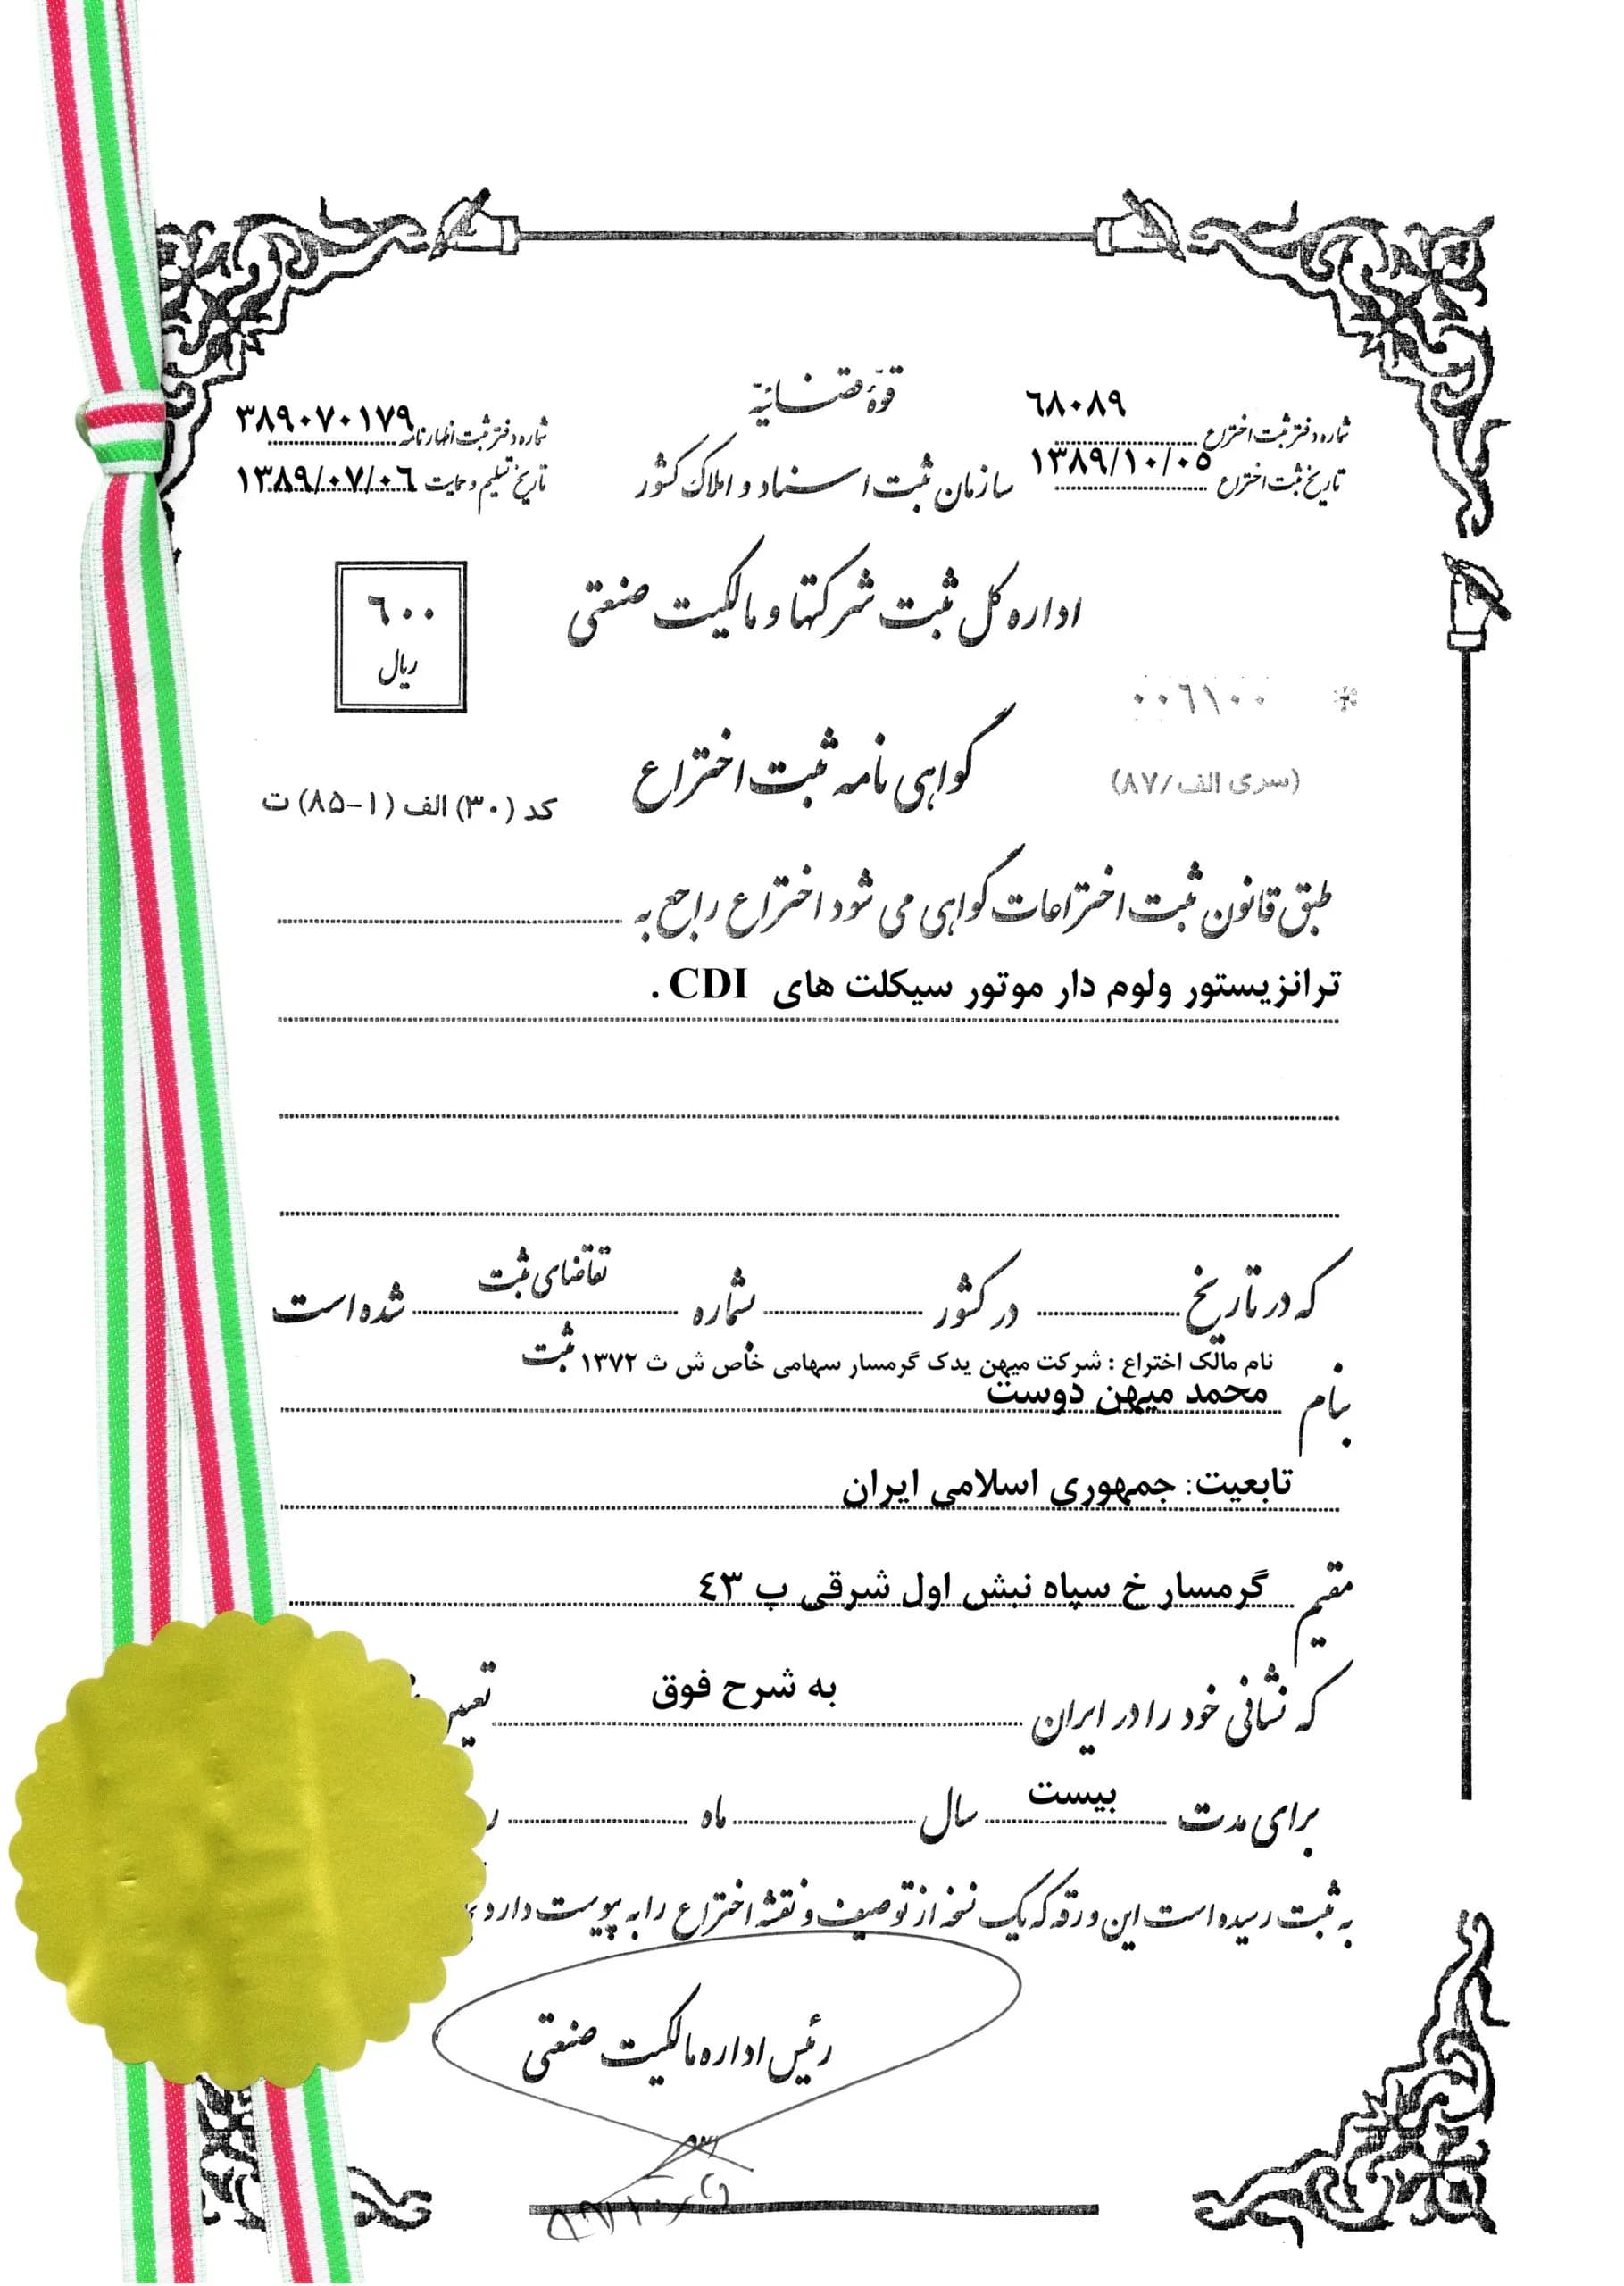 قوهٔ قضائیه
سازمان ثبت اسناد و املاک کشور
شماره دفتر ثبت اختراع ٦٨٠٨٩
تاریخ ثبت اختراع ١٣٨٩/١٠/٠٥
شماره دفتر ثبت اظهارنامه ٣٨٩٠٧٠١٧٩
تاریخ تسلیم و حمایت ١٣٨٩/٠٧/٠٦
اداره کل ثبت شرکتها و مالکیت صنعتی
٦٠٠
ریال
٠٠٦١٠٠
(سری الف/٨٧)
گواهی نامه ثبت اختراع
کد (٣٠) الف (١-٨۵) ت
طبق قانون ثبت اختراعات گواهی می شود اختراع راجع به
ترانزیستور ولوم دار موتور سیکلت های CDI .
که در تاریخ در کشور بشماره تقاضای ثبت شده است
ثبت
نام مالک اختراع : شرکت میهن یدک گرمسار سهامی خاص ش ث ١٣٧٢
بنام محمد میهن دوست
تابعیت: جمهوری اسلامی ایران
مقیم گرمسار خ سپاه نبش اول شرقی پ ٤٣
که نشانی خود را در ایران به شرح فوق
برای مدت بیست سال ماه
به ثبت رسیده است این ورقه که یک نسخه از توصیف و نقشه اختراع را به پیوست دارد
رئیس اداره مالکیت صنعتی